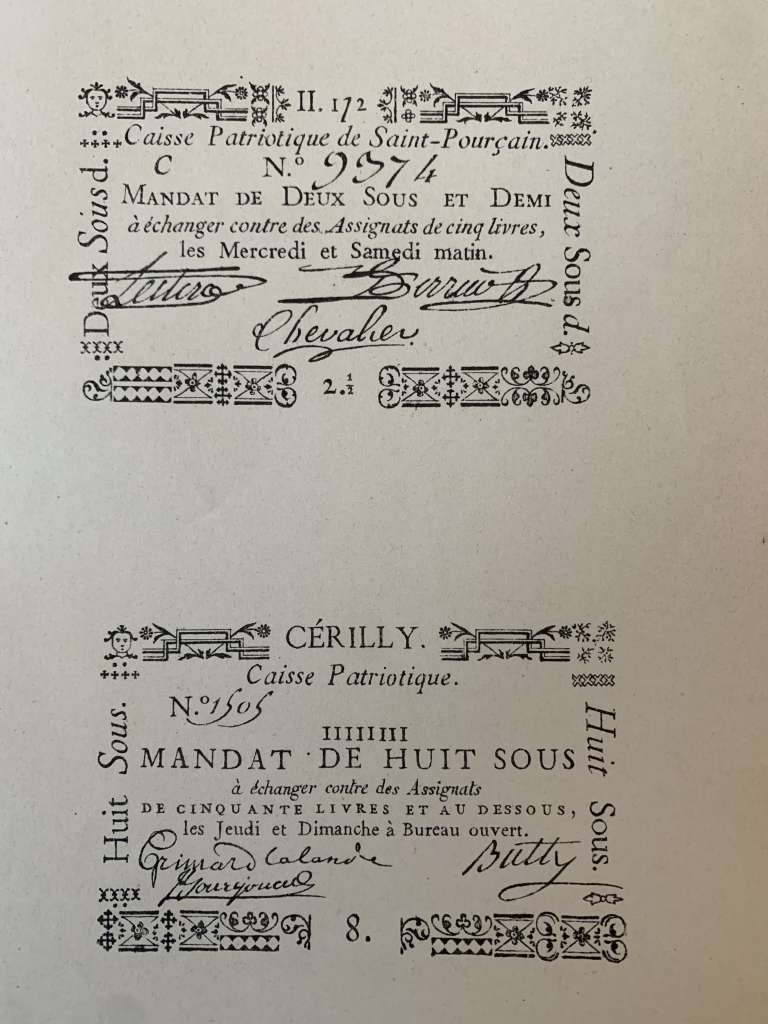 II. 1/2
Caisse Patriotique de Saint-Pourçain.
C N.º 9374
MANDAT DE DEUX SOUS ET DEMI
à échanger contre des Assignats de cinq livres,
les Mercredi et Samedi matin.
Deux Sous d.
Deux Sous d.
Chevalier
2. ½
CÉRILLY.
Caisse Patriotique.
N.º 1505
IIIIIIII
MANDAT DE HUIT SOUS
à échanger contre des Assignats
DE CINQUANTE LIVRES ET AU DESSOUS,
les Jeudi et Dimanche à Bureau ouvert.
Huit Sous.
Huit Sous.
Grimard Lalande Butty
8.